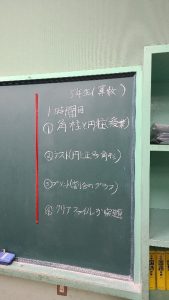 5年生(算数)
1時間目
① 角柱と円柱(授業)
② テスト(円と正多角形)
③ プリント(割合のグラフ)
④ クリアファイルの宿題